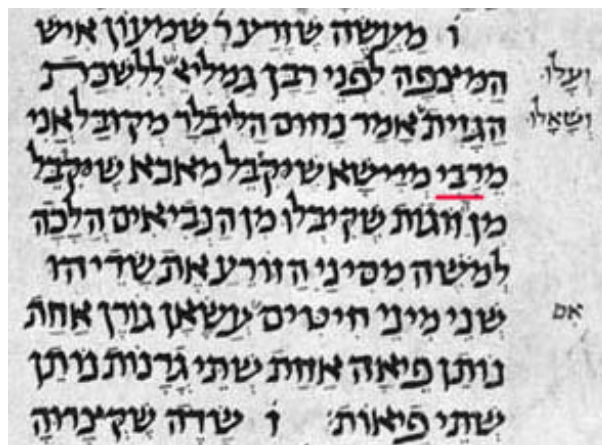 ו מעשה שזרע ר שמעון איש
המיצפה לפני רבן גמליא ללשכת ועלו
הגזית אמר נחום הליבלר מקובל אני ושאלו
מרבי מיישא שקיבל מאבא שקיבל
מן זוגות שקיבלו מן הנביאים הלכה
למשה מסיני הזורע את שדיהו
שני מיני חיטים עשאן גורן אחת אם
נותן פיאה אחת שתי גרנות נותן
שתי פיאות ו שדה שקצרוה